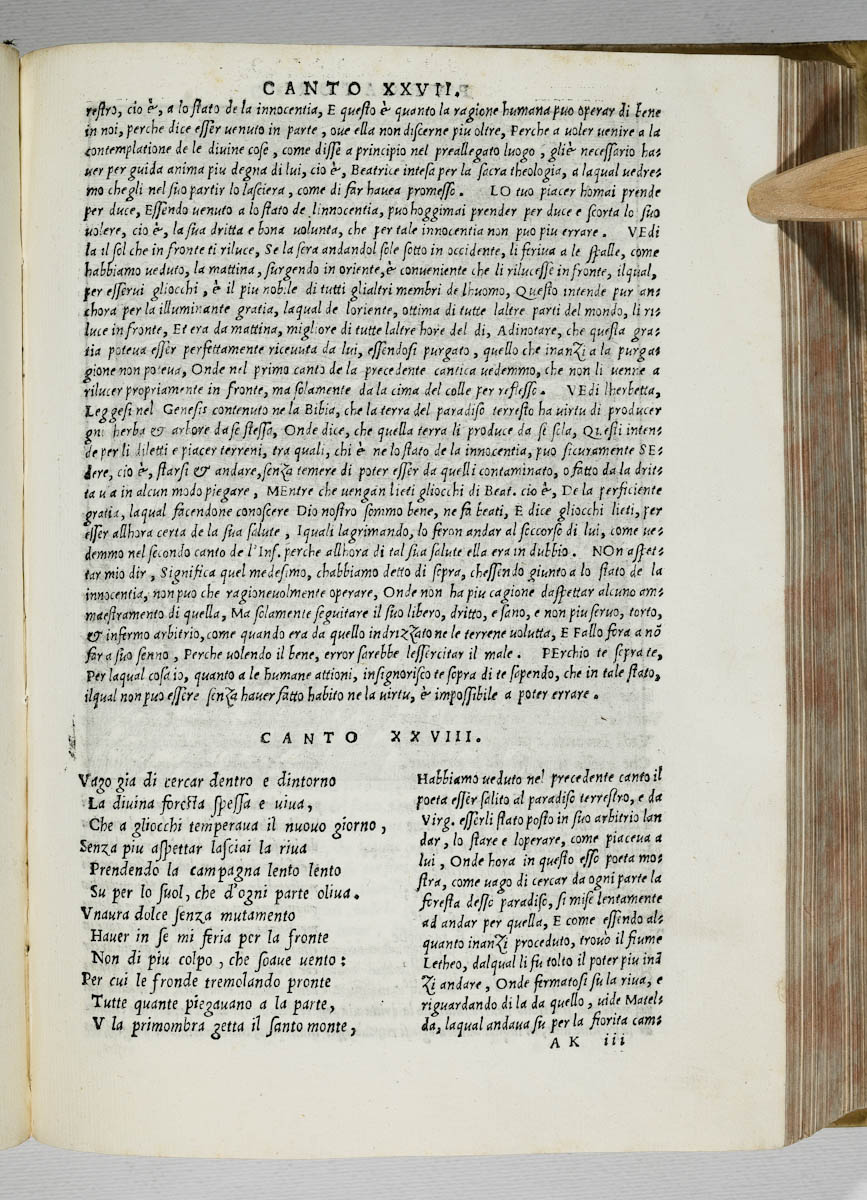 CANTO XXVII.
restro, cio è, a lo stato de la innocentia, E questo è quanto la ragione humana puo operar di bene
in noi, perche dice esser uenuto in parte, oue ella non discerne piu oltre, Perche a uoler uenire a la
contemplatione de le diuine cose, come disse a principio nel preallegato luogo, gliè necessario ha-
uer per guida anima piu degna di lui, cio è, Beatrice intesa per la sacra theologia, a laqual uedre-
mo chegli nel suo partir lo lasciera, come di far hauea promesso. LO tuo piacer homai prende
per duce, Essendo uenuto a lo stato de linnocentia, puo hoggimai prender per duce e scorta lo suo
uolere, cio è, la sua dritta e bona uolunta, che per tale innocentia non puo piu errare. VEdi
la il sol che in fronte ti riluce, Se la sera andandol sole sotto in occidente, li feriua a le spalle, come
habbiamo ueduto, la mattina, surgendo in oriente, è conueniente che li rilucesse in fronte, ilqual,
per esserui gliocchi, è il piu nobile di tutti glialtri membri de lhuomo, Questo intende pur an-
chora per la illuminante gratia, laqual de loriente, ottima di tutte laltre parti del mondo, li ri-
luce in fronte, Et era da mattina, migliore di tutte laltre hore del di, Adinotare, che questa gra-
tia poteua esser perfettamente riceuuta da lui, essendosi purgato, quello che inanzi a la purga-
gione non poteua, Onde nel primo canto de la precedente cantica uedemmo, che non li uenne a
rilucer propriamente in fronte, ma solamente da la cima del colle per reflesso. VEdi lherbetta,
Leggesi nel Genesis contenuto ne la Bibia, che la terra del paradiso terresto ha uirtu di producer
gni herba & arbore da se stessa, Onde dice, che quella terra li produce da se sola, Questi inten-
de per li diletti e piacer terreni, tra quali, chi è ne lo stato de la innocentia, puo sicuramente SE-
dere, cio è, starsi & andare, senza temere di poter esser da quelli contaminato, o fatto da la drit-
ta uia in alcun modo piegare, MEntre che uengan lieti gliocchi di Beat. cio è, De la perficiente
gratia, laqual facendone conoscere Dio nostro sommo bene, ne fa beati, E dice gliocchi lieti, per
esser allhora certa de la sua salute, I quali lagrimando, lo feron andar al soccorso di lui, come ue-
demmo nel secondo canto de l'Inf. perche allhora di tal sua salute ella era in dubbio. NOn aspet-
tar mio dir, Significa quel medesimo, chabbiamo detto di sopra, chessendo giunto a lo stato de la
innocentia, non puo che ragioneuolmente operare, Onde non ha piu cagione daspettar alcuno am-
maestramento di quella, Ma solamente seguitare il suo libero, dritto, e sano, e non piu seruo, torto,
& infermo arbitrio, come quando era da quello indrizzato ne le terrene uolutta, E Fallo fora a nō
far a suo senno, Perche uolendo il bene, error sarebbe lessercitar il male. PErchio te sopra te,
Per laqual cosa io, quanto a le humane attioni, insignorisco te sopra di te sapendo, che in tale stato,
ilqual non puo essere senza hauer fatto habito ne la uirtu, è impossibile a poter errare.
CANTO XXVIII.
Vago gia di cercar dentro e dintorno
La diuina foresta spessa e uiua,
Che a gliocchi temperaua il nuouo giorno,
Senza piu aspettar lasciai la riua
Prendendo la campagna lento lento
Su per lo suol, che d'ogni parte oliua.
Vnaura dolce senza mutamento
Hauer in se mi feria per la fronte
Non di piu colpo, che soaue uento:
Per cui le fronde tremolando pronte
Tutte quante piegauano a la parte,
V la primombra getta il santo monte,
Habbiamo ueduto nel precedente canto il
poeta esser salito al paradiso terrestro, e da
Virg. esserli stato posto in suo arbitrio lan
dar, lo stare e loperare, come piaceua a
lui, Onde hora in questo esso poeta mo-
stra, come uago di cercar da ogni parte la
foresta desso paradiso, si mise lentamente
ad andar per quella, E come essendo al-
quanto inanzi proceduto, trouò il fiume
Letheo, dalqual li fu tolto il poter piu inā
zi andare, Onde fermatosi su la riua, e
riguardando di la da quello, uide Matel-
da, laqual andaua su per la fiorita cam-
AK iii